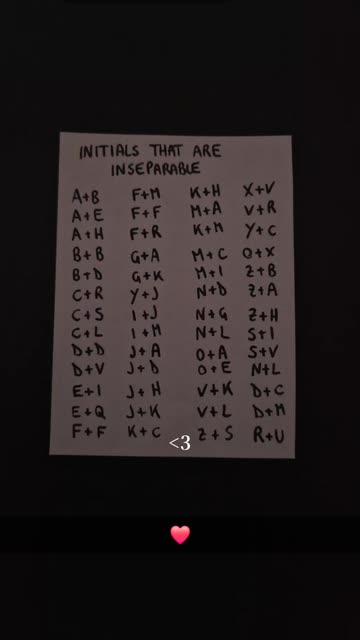 INITIALS THAT ARE
INSEPARABLE
A+B F+M K+H X+V
A+E F+F M+A V+R
A+H F+R K+M Y+C
B+B G+A M+C O+X
B+D G+K M+I Z+B
C+R Y+J N+D Z+A
C+S I+J N+G Z+H
C+L I+M N+L S+I
D+D J+A O+A S+V
D+V J+D O+E N+L
E+I J+H V+K D+C
E+Q J+K V+L D+M
F+F K+C Z+S R+U
<3